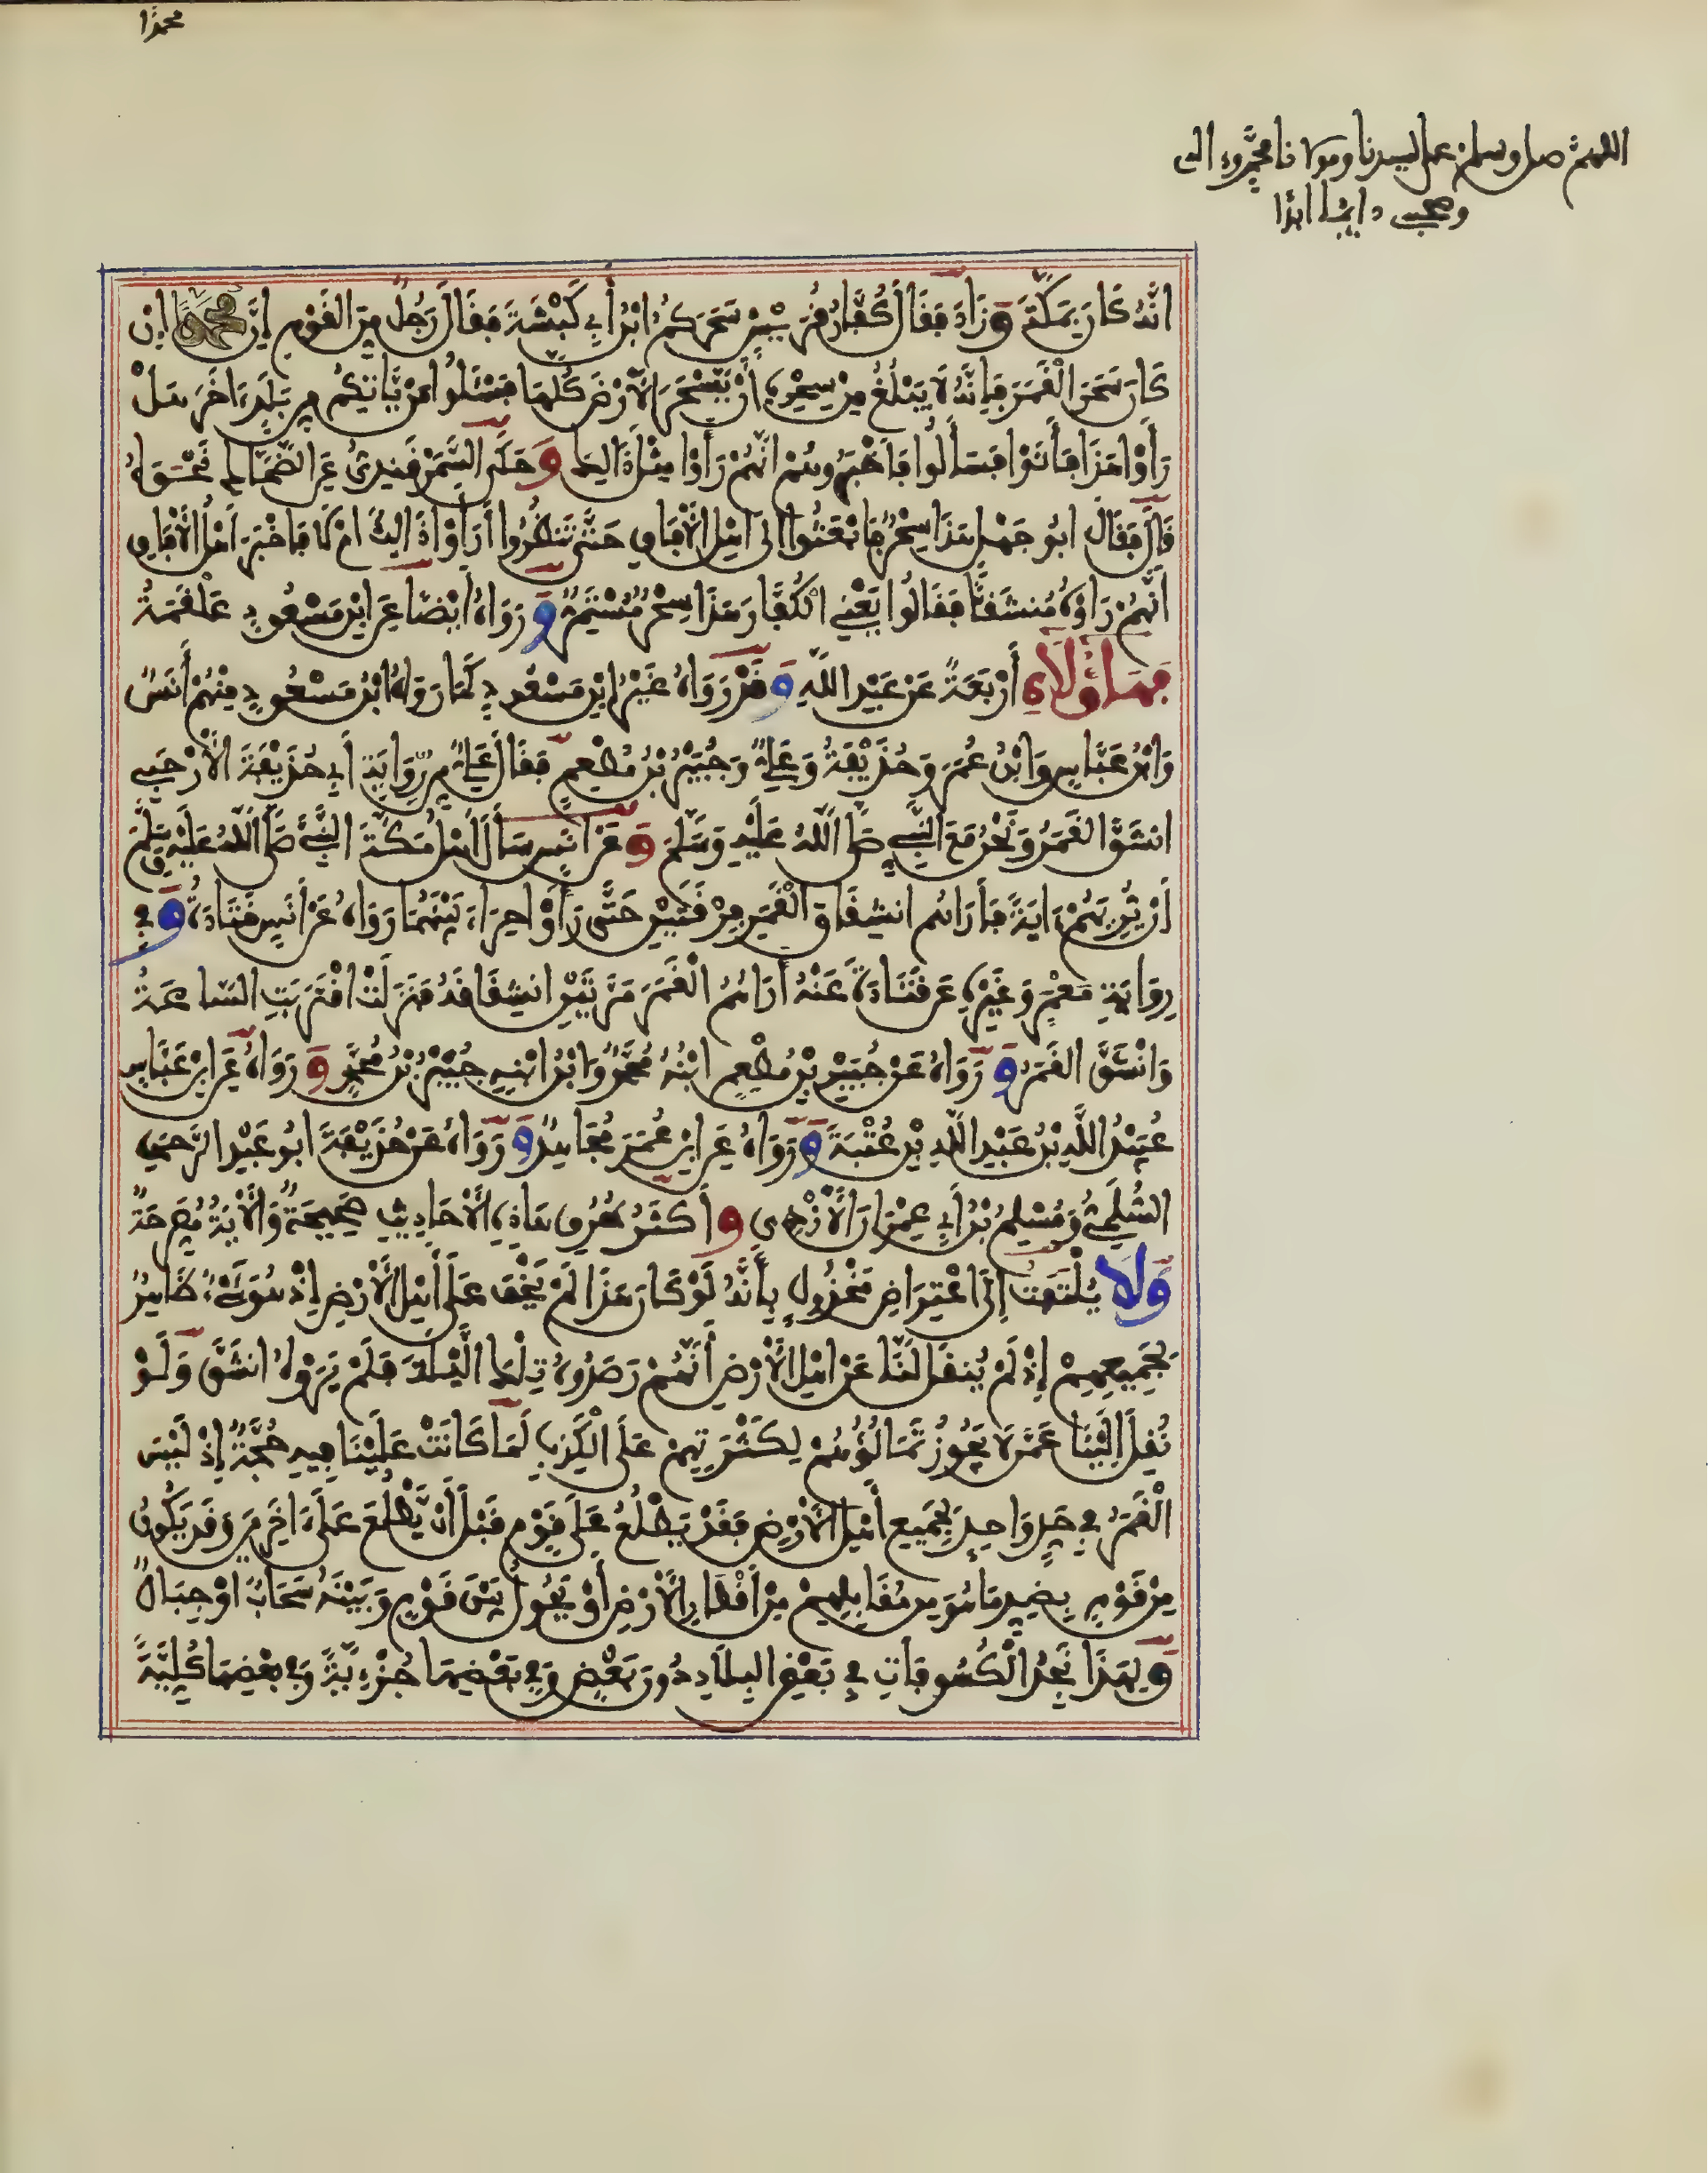 محمدا
اللهم صل وسلم على سيدنا ومولانا محمد وءاله
وصحبه دايما ابدا
انَّهُ كَانَ بِمَكَّةَ وَزَادَ فَقَالَ كُفَّارُ قُرَيْشٍ سَحَرَكُمُ ابْنُ أَبِي كَبْشَةَ فَقَالَ رَجُلٌ مِنَ الْقَوْمِ إِنَّ مُحَمَّدًا انْ
كَانَ سَحَرَ الْقَمَرَ فَإِنَّهُ لَا يَبْلُغُ مِنْ سِحْرِهِ أَنْ يَسْحَرَ الْأَرْضَ كُلَّهَا فَسْئَلُوا مَنْ يَّاتِيكُم مِن بَلَدٍ ءَاخَرَ هَلْ
رَأَوْا هَذَا فَأَتَوْا فَسَأَلُوا فَأَخْبَرُوهُمْ انَّهُمْ رَأَوْا مِثْلَ ذَالِكَ وَحَكَى السَّمَرْقَنْدِيُّ عَنِ الضَّحَّاكِ نَحْوَهُ
قَالَ فَقَالَ ابُو جَهْلٍ هَذَا سِحْرٌ فَابْعَثُوا الى اهْلِ الْأَفَاقِ حَتَّى تَنْظُرُوا أَرَأَوْا ذَالِكَ امْ لَا فَأَخْبَرَ اهْلُ الْأَفَاقِ
انَّهُمْ رَأَوْهُ مُنشَقًّا فَقَالُوا يَعْنِي الْكُفَّارَ هَذَا سِحْرٌ مُّسْتَمِرٌّ وَرَوَاهُ ايْضًا عَنِ ابْنِ مَسْعُودٍ عَلْقَمَةُ
فَهَؤُلَاءِ أَرْبَعَةٌ عَنْ عَبْدِ اللَّهِ وَقَدْ رَوَاهُ غَيْرُ ابْنِ مَسْعُودٍ كَمَا رَوَاهُ ابْنُ مَسْعُودٍ مِنْهُمْ أَنَسٌ
وَابْنُ عَبَّاسٍ وَابْنُ عُمَرَ وَحُذَيْفَةُ وَعَلِيٌّ وَجُبَيْرُ بْنُ مُطْعِمٍ فَقَالَ عَلِيٌّ مِن رِّوَايَةِ أَبِي حُذَيْفَةَ الْأَرْحَبِي
انشَقَّ الْقَمَرُ وَنَحْنُ مَعَ النَّبِي صَلَّى اللَّهُ عَلَيْهِ وَسَلَّمَ وَعَنْ انَسٍ سَأَلَ اهْلُ مَكَّةَ النَّبِيَّ صَلَّى اللَّهُ عَلَيْهِ وَسَلَّمَ
أَنْ يُّرِيَهُمْ ءَايَةً فَأَرَاهُم انشِقَاقَ الْقَمَرِ مِرْقَتَيْنِ حَتَّى رَأَوْا حِرَاءَ بَيْنَهُمَا رَوَاهُ عَنْ أَنَسٍ قَتَادَةُ وَفِي
رِوَايَةِ مَعْمَرٍ وَغَيْرِهِ عَن قَتَادَةَ عَنْهُ أَرَاهُمُ الْقَمَرَ مَرَّتَيْنِ انشِقَاقَهُ فَنَزَلَتْ اقْتَرَبَتِ السَّاعَةُ
وَانْشَقَّ الْقَمَرُ وَرَوَاهُ عَنْ جُبَيْرِ بْنِ مُطْعِمٍ ابْنُهُ مُحَمَّدٌ وَابْنُ ابْنِهِ جُبَيْرُ بْنُ مُحَمَّدٍ وَرَوَاهُ عَنِ ابْنِ عَبَّاسٍ
عُبَيْدُ اللَّهِ بْنُ عَبْدِ اللَّهِ بْنِ عُتْبَةَ وَرَوَاهُ عَنِ ابْنِ عُمَرَ مُجَاهِدٌ وَرَوَاهُ عَنْ حُذَيْفَةَ ابُو عَبْدِ الرَّحْمَنِ
السُّلَمِيُّ وَمُسْلِمُ بْنُ أَبِي عِمْرَانَ الْأَزْدِي وَأَكْثَرُ طُرُقِ هَاذِهِ الْأَحَادِيثِ صَحِيحَةٌ وَالْأَيَةُ مُصَرِّحَةٌ
وَلَا يُلْتَفَتُ إِلَى اعْتِرَاضِ مَخْذُولٍ بِأَنَّهُ لَوْ كَانَ هَذَا لَمْ يَخْفَ عَلَى أَهْلِ الْأَرْضِ إِذْ هُوَ شَيْءٌ ظَاهِرٌ
لِجَمِيعِهِمْ إِذْ لَمْ يُنقَلْ لَنَا عَنْ اهْلِ الْأَرْضِ أَنَّهُمْ رَصَدُوهُ تِلْكَ الَّيْلَةَ فَلَمْ يَرَوْهُ انشَقَّ وَلَوْ
نُقِلَ إِلَيْنَا عَمَّن لَا يَجُوزُ تَمَالُؤُهُمْ لِكَثْرَتِهِمْ عَلَى الْكَذِبِ لَمَا كَانَتْ عَلَيْنَا فِيهِ حُجَّةٌ إِذْ لَيْسَ
الْقَمَرُ فِي حَدٍّ وَاحِدٍ لِجَمِيعِ أَهْلِ الْأَرْضِ فَقَدْ يَطْلُعُ عَلَى قَوْمٍ قَبْلَ أَنْ يَّطْلُعَ عَلَى ءَاخَرِينَ وَقَدْ يَكُونُ
مِنْ قَوْمٍ بِضِدِّ مَا هُوَ مِن مُقَابِلِهِمْ مِنْ أَقْطَارِ الْأَرْضِ أَوْ يَحُولُ بَيْنَ قَوْمٍ وَبَيْنَهُ سَحَابٌ اوْ جِبَالٌ
وَلِهَذَا نَجِدُ الْكُسُوفَاتِ فِي بَعْضِ الْبِلَادِ دُونَ بَعْضٍ وَفِي بَعْضِهَا جُزْءِيَّةً وَفِي بَعْضِهَا كُلِّيَّةً